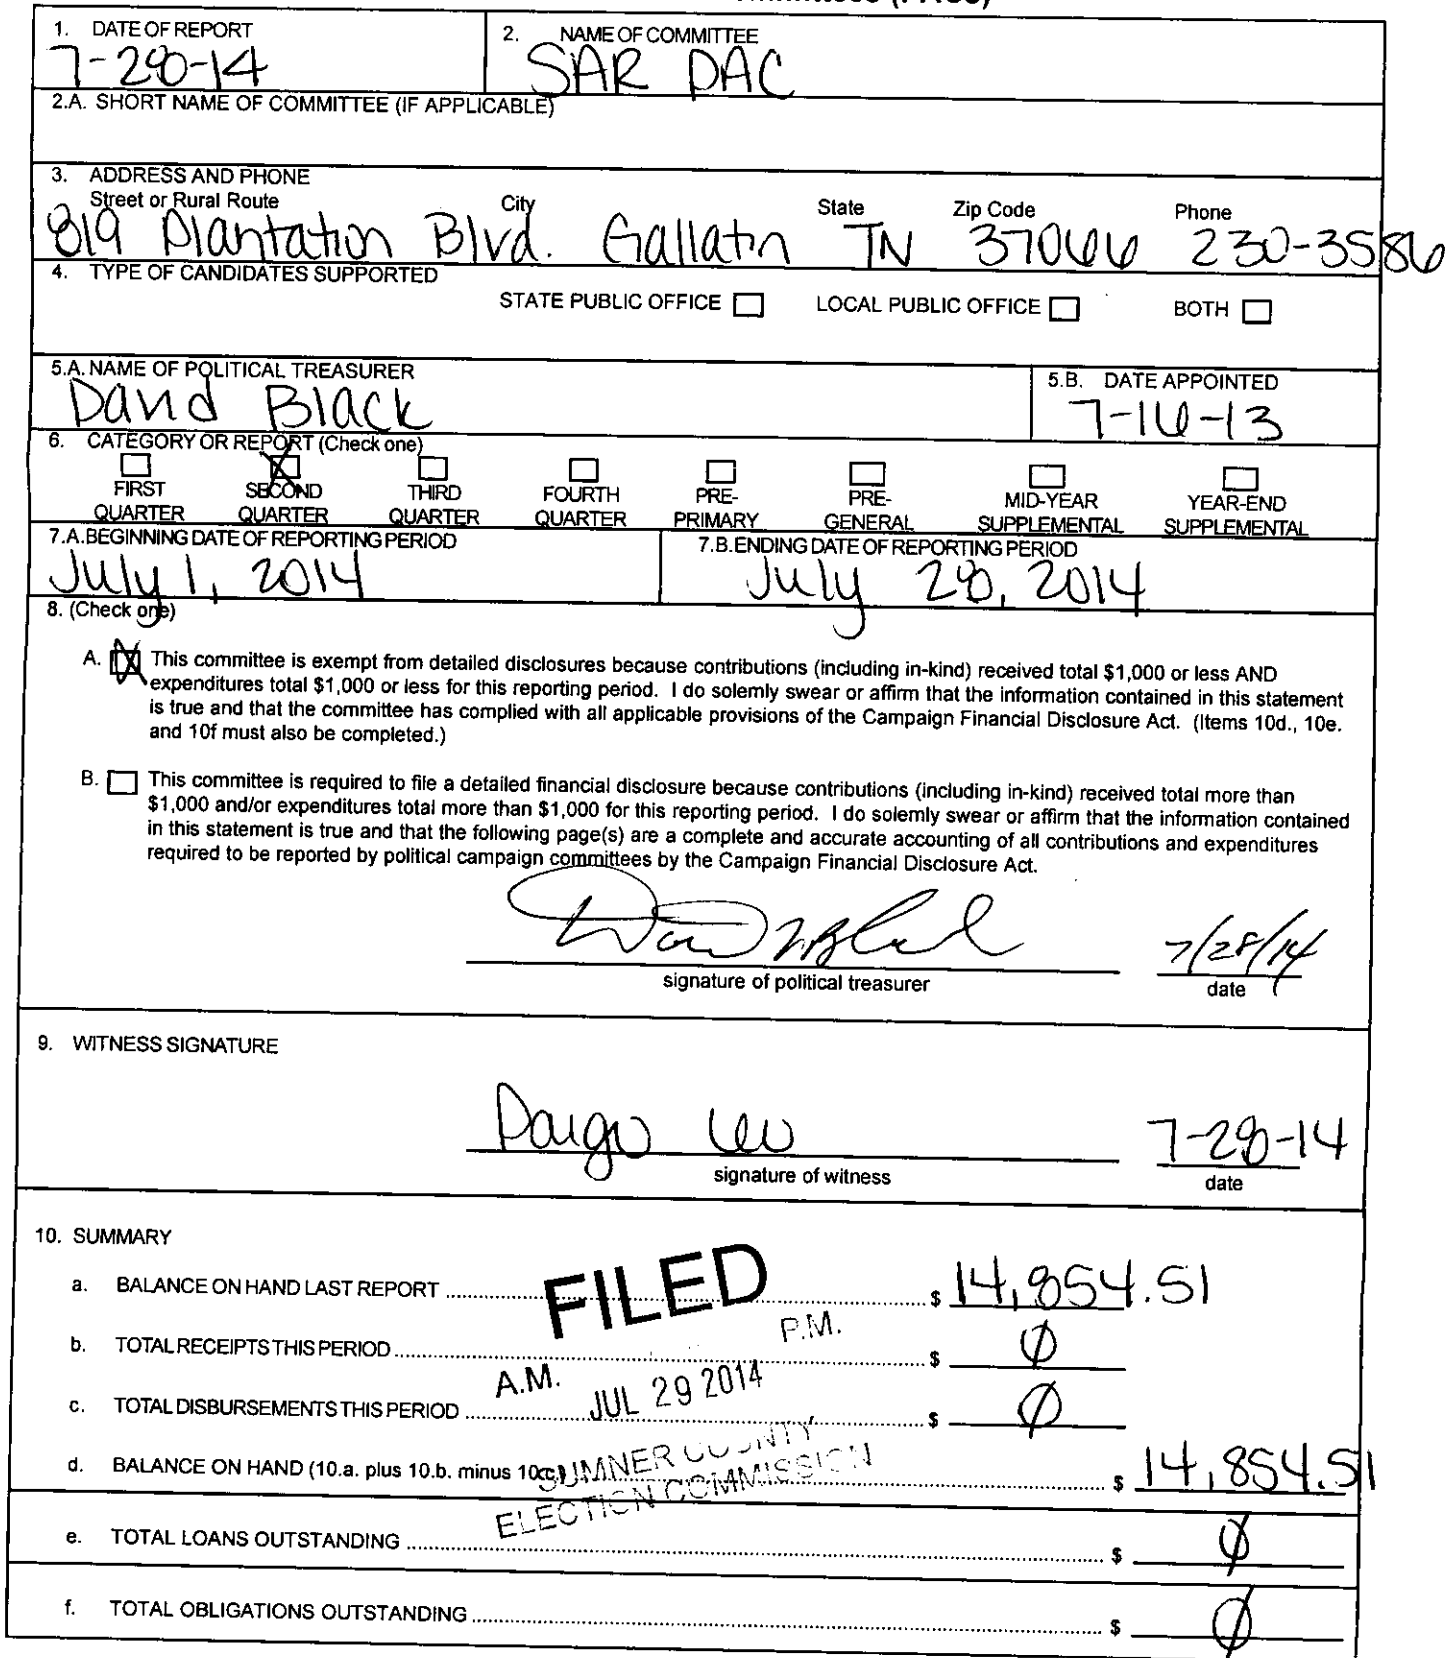 1. DATE OF REPORT
7-28-14
2. NAME OF COMMITTEE
SAR PAC
2.A. SHORT NAME OF COMMITTEE (IF APPLICABLE)
3. ADDRESS AND PHONE
Street or Rural Route City State Zip Code Phone
819 Plantation Blvd. Gallatin TN 37066 230-3586
4. TYPE OF CANDIDATES SUPPORTED
STATE PUBLIC OFFICE LOCAL PUBLIC OFFICE BOTH
5.A. NAME OF POLITICAL TREASURER
David Black
5.B. DATE APPOINTED
7-16-13
6. CATEGORY OR REPORT (Check one)
FIRST QUARTER
SECOND QUARTER
THIRD QUARTER
FOURTH QUARTER
PRE-PRIMARY
PRE-GENERAL
MID-YEAR SUPPLEMENTAL
YEAR-END SUPPLEMENTAL
7.A. BEGINNING DATE OF REPORTING PERIOD
July 1, 2014
7.B. ENDING DATE OF REPORTING PERIOD
July 28, 2014
8. (Check one)
A. This committee is exempt from detailed disclosures because contributions (including in-kind) received total $1,000 or less AND
expenditures total $1,000 or less for this reporting period. I do solemly swear or affirm that the information contained in this statement
is true and that the committee has complied with all applicable provisions of the Campaign Financial Disclosure Act. (Items 10d., 10e.
and 10f must also be completed.)
B. This committee is required to file a detailed financial disclosure because contributions (including in-kind) received total more than
$1,000 and/or expenditures total more than $1,000 for this reporting period. I do solemly swear or affirm that the information contained
in this statement is true and that the following page(s) are a complete and accurate accounting of all contributions and expenditures
required to be reported by political campaign committees by the Campaign Financial Disclosure Act.
7/28/14
signature of political treasurer date
9. WITNESS SIGNATURE
Paige 7-28-14
signature of witness date
10. SUMMARY
a. BALANCE ON HAND LAST REPORT $ 14,854.51
b. TOTAL RECEIPTS THIS PERIOD $ 0
c. TOTAL DISBURSEMENTS THIS PERIOD $ 0
d. BALANCE ON HAND (10.a. plus 10.b. minus 10.c.) $ 14,854.51
e. TOTAL LOANS OUTSTANDING $ 0
f. TOTAL OBLIGATIONS OUTSTANDING $ 0
FILED
A.M. P.M.
JUL 29 2014
SUMNER COUNTY
ELECTION COMMISSION